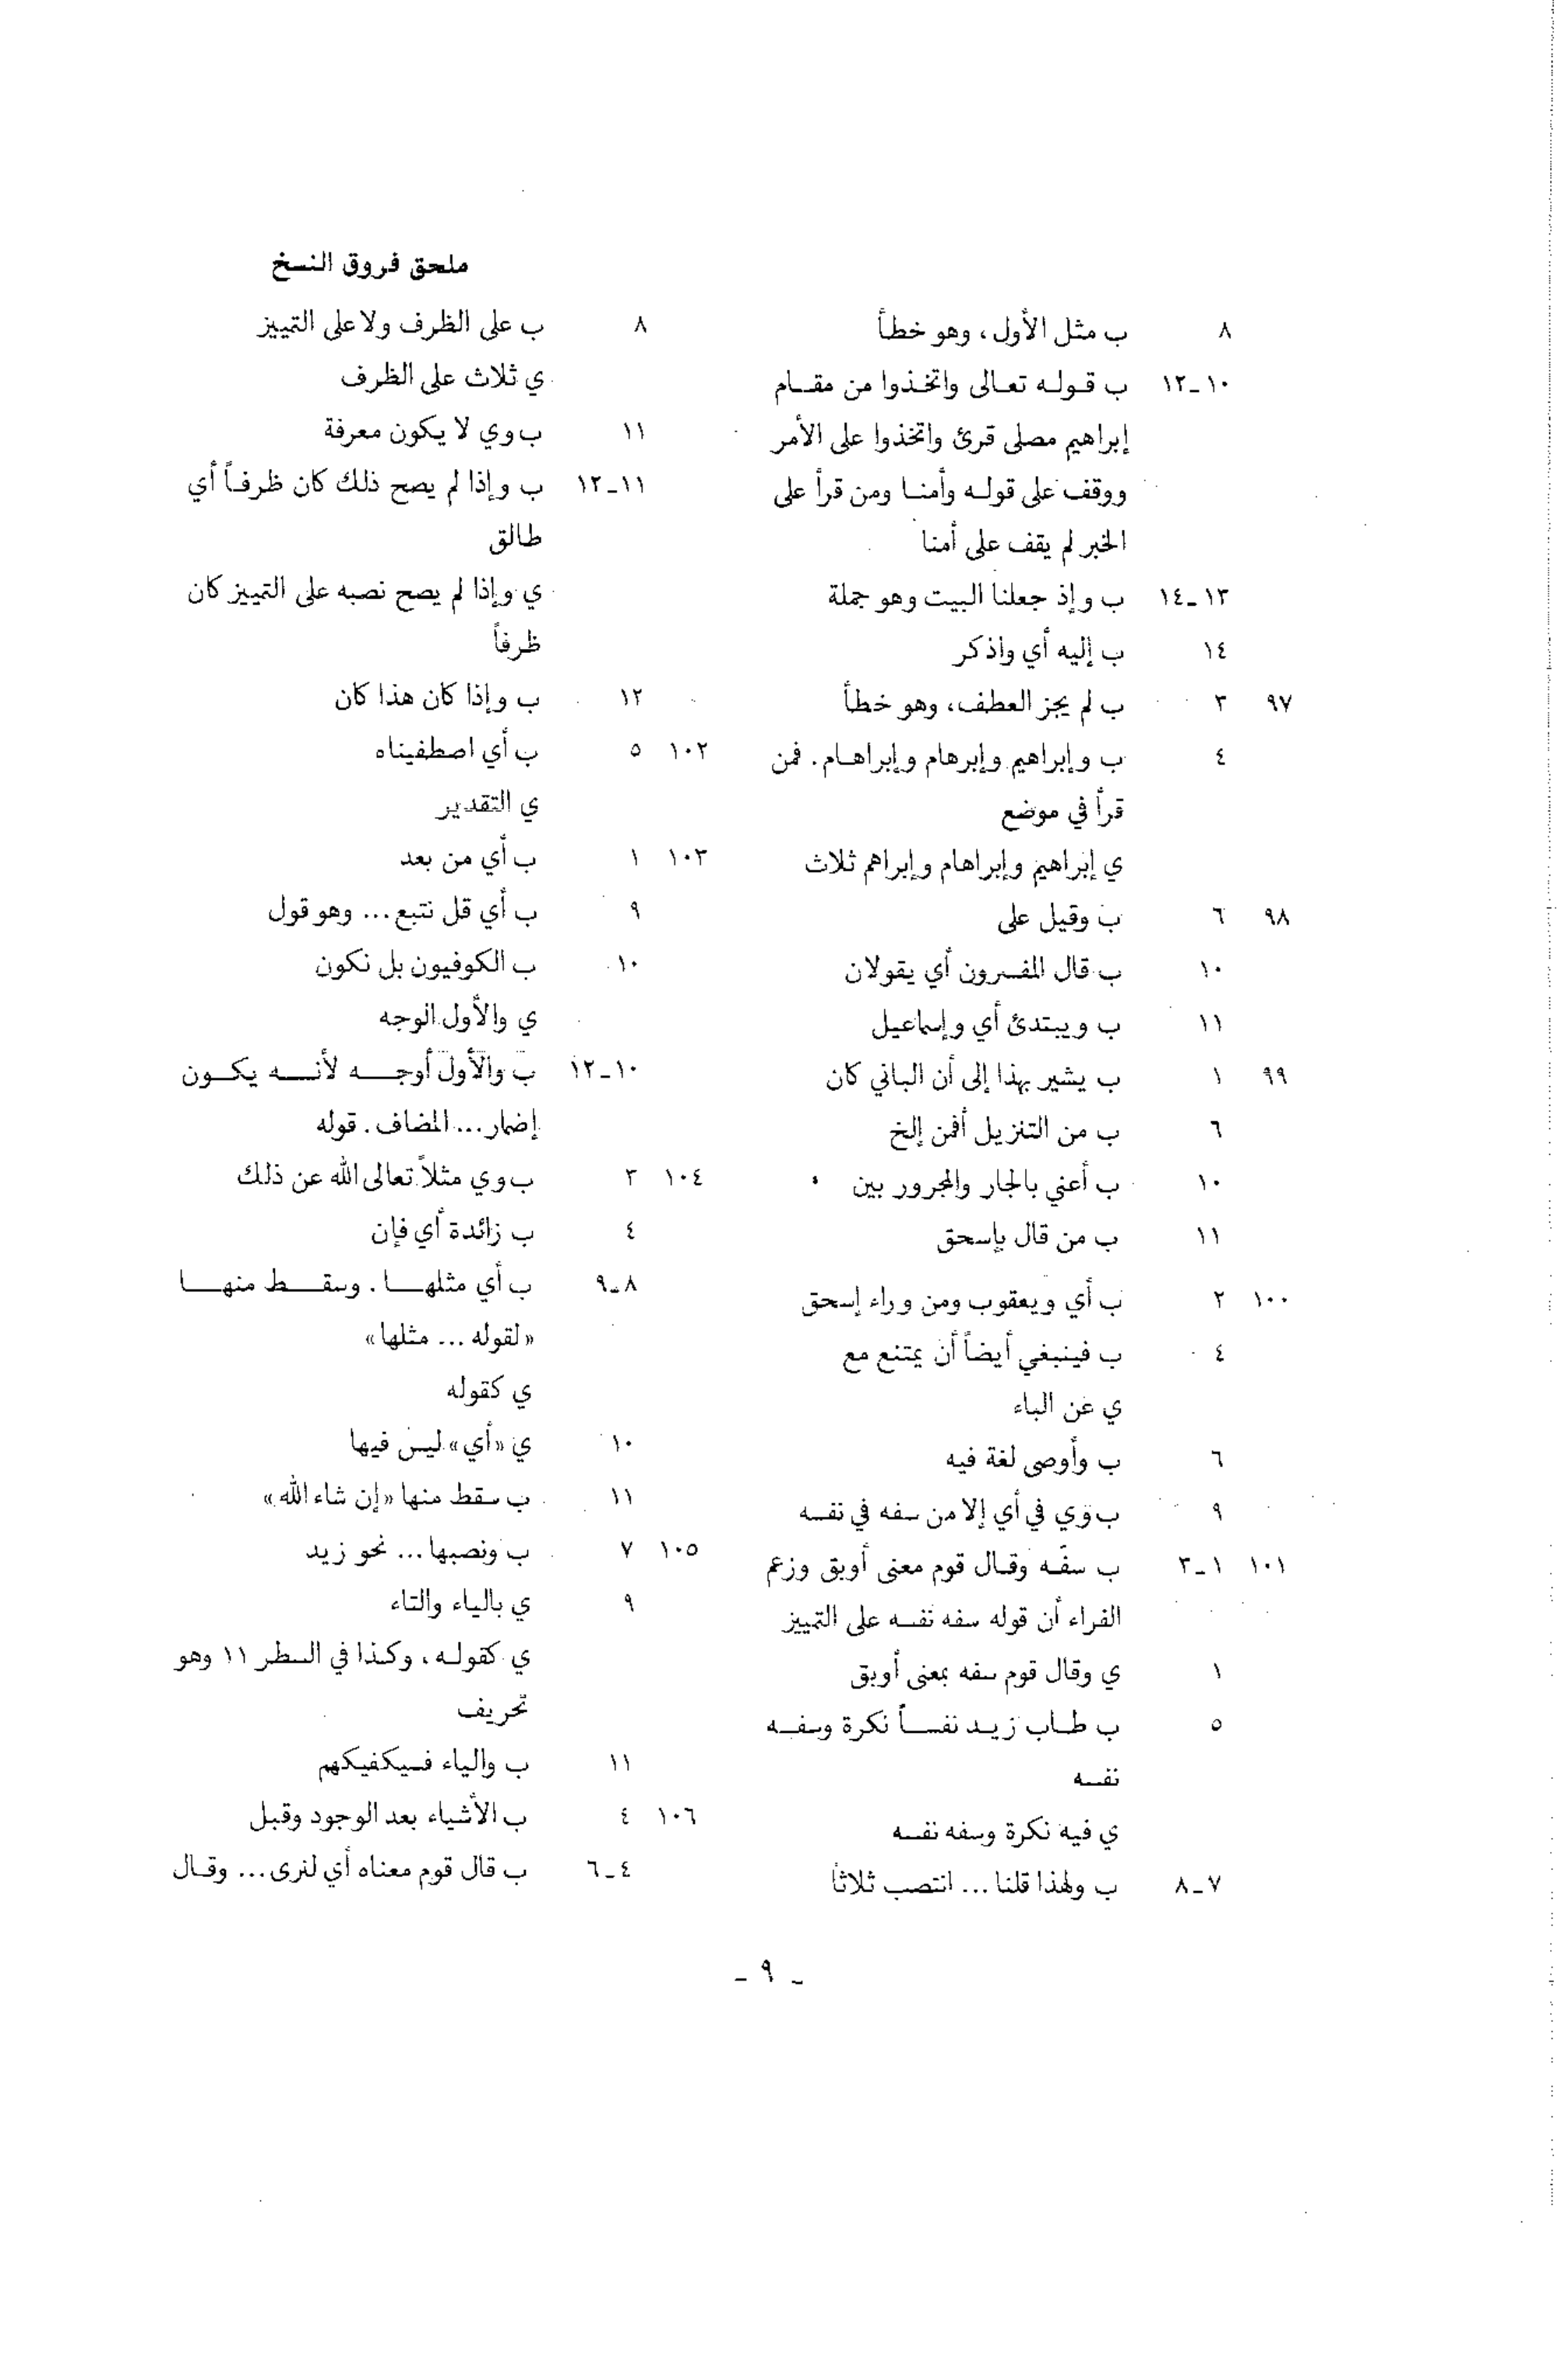 ملحق فروق النسخ
٨ ب مثل الأول، وهو خطأ
١٠-١٢ ب قوله تعالى واتخذوا من مقام
إبراهيم مصلى قرئ واتخذوا على الأمر
ووقف على قوله وأمنا ومن قرأ على
الخبر لم يقف على أمنا
١٣-١٤ ب وإذ جعلنا البيت وهو جملة
١٤ ب إليه أي واذكر
٩٧ ٣ ب لم يجز العطف، وهو خطأ
٤ ب وإبراهيم وإبرهام وإبراهام. فمن
قرأ في موضع
ي إبراهيم وإبراهام وإبراهم ثلاث
٩٨ ٦ ب وقيل على
١٠ ب قال المفسرون أي يقولان
١١ ب ويبتدئ أي وإسماعيل
٩٩ ١ ب يشير بهذا إلى أن الباني كان
٦ ب من التنزيل أفمن إلخ
١٠ ب أعني بالجار والمجرور بين
١١ ب من قال بإسحق
١٠٠ ٢ ب أي ويعقوب ومن وراء إسحق
٤ ب فينبغي أيضاً أن يمتنع مع
ي عن الباء
٦ ب وأوصى لغة فيه
٩ ب وي في أي إلا من سفه في نفسه
١٠١ ١-٣ ب سفّه وقال قوم معنى أوبق وزعم
الفراء أن قوله سفه نفسه على التمييز
١ ي وقال قوم سفه بمعنى أوبق
٥ ب طاب زيد نفساً نكرة وسفه
نفسه
ي فيه نكرة وسفه نفسه
٧-٨ ب ولهذا قلنا ... انتصب ثلاثاً
٨ ب على الظرف ولا على التمييز
ي ثلاث على الظرف
١١ ب وي لا يكون معرفة
١١-١٢ ب وإذا لم يصح ذلك كان ظرفاً أي
طالق
ي وإذا لم يصح نصبه على التمييز كان
ظرفاً
١٢ ب وإذا كان هذا كان
١٠٢ ٥ ب أي اصطفيناه
ي التقدير
١٠٣ ١ ب أي من بعد
٩ ب أي قل نتبع... وهو قول
١٠ ب الكوفيون بل نكون
ي والأول الوجه
١٠-١٢ ب والأول أوجه لأنه يكون
إضمار... المضاف. قوله
١٠٤ ٣ ب وي مثلاً تعالى الله عن ذلك
٤ ب زائدة أي فإن
٨-٩ ب أي مثلها. وسقط منها
«لقوله ... مثلها»
ي كقوله
١٠ ي «أي» ليس فيها
١١ ب سقط منها «إن شاء الله»
١٠٥ ٧ ب ونصبها... نحو زيد
٩ ي بالياء والتاء
ي كقوله، وكذا في السطر ١١ وهو
تحريف
١١ ب والياء فسيكفيكهم
١٠٦ ٤ ب الأشياء بعد الوجود وقبل
٤-٦ ب قال قوم معناه أي لنرى... وقال
- ٩ -